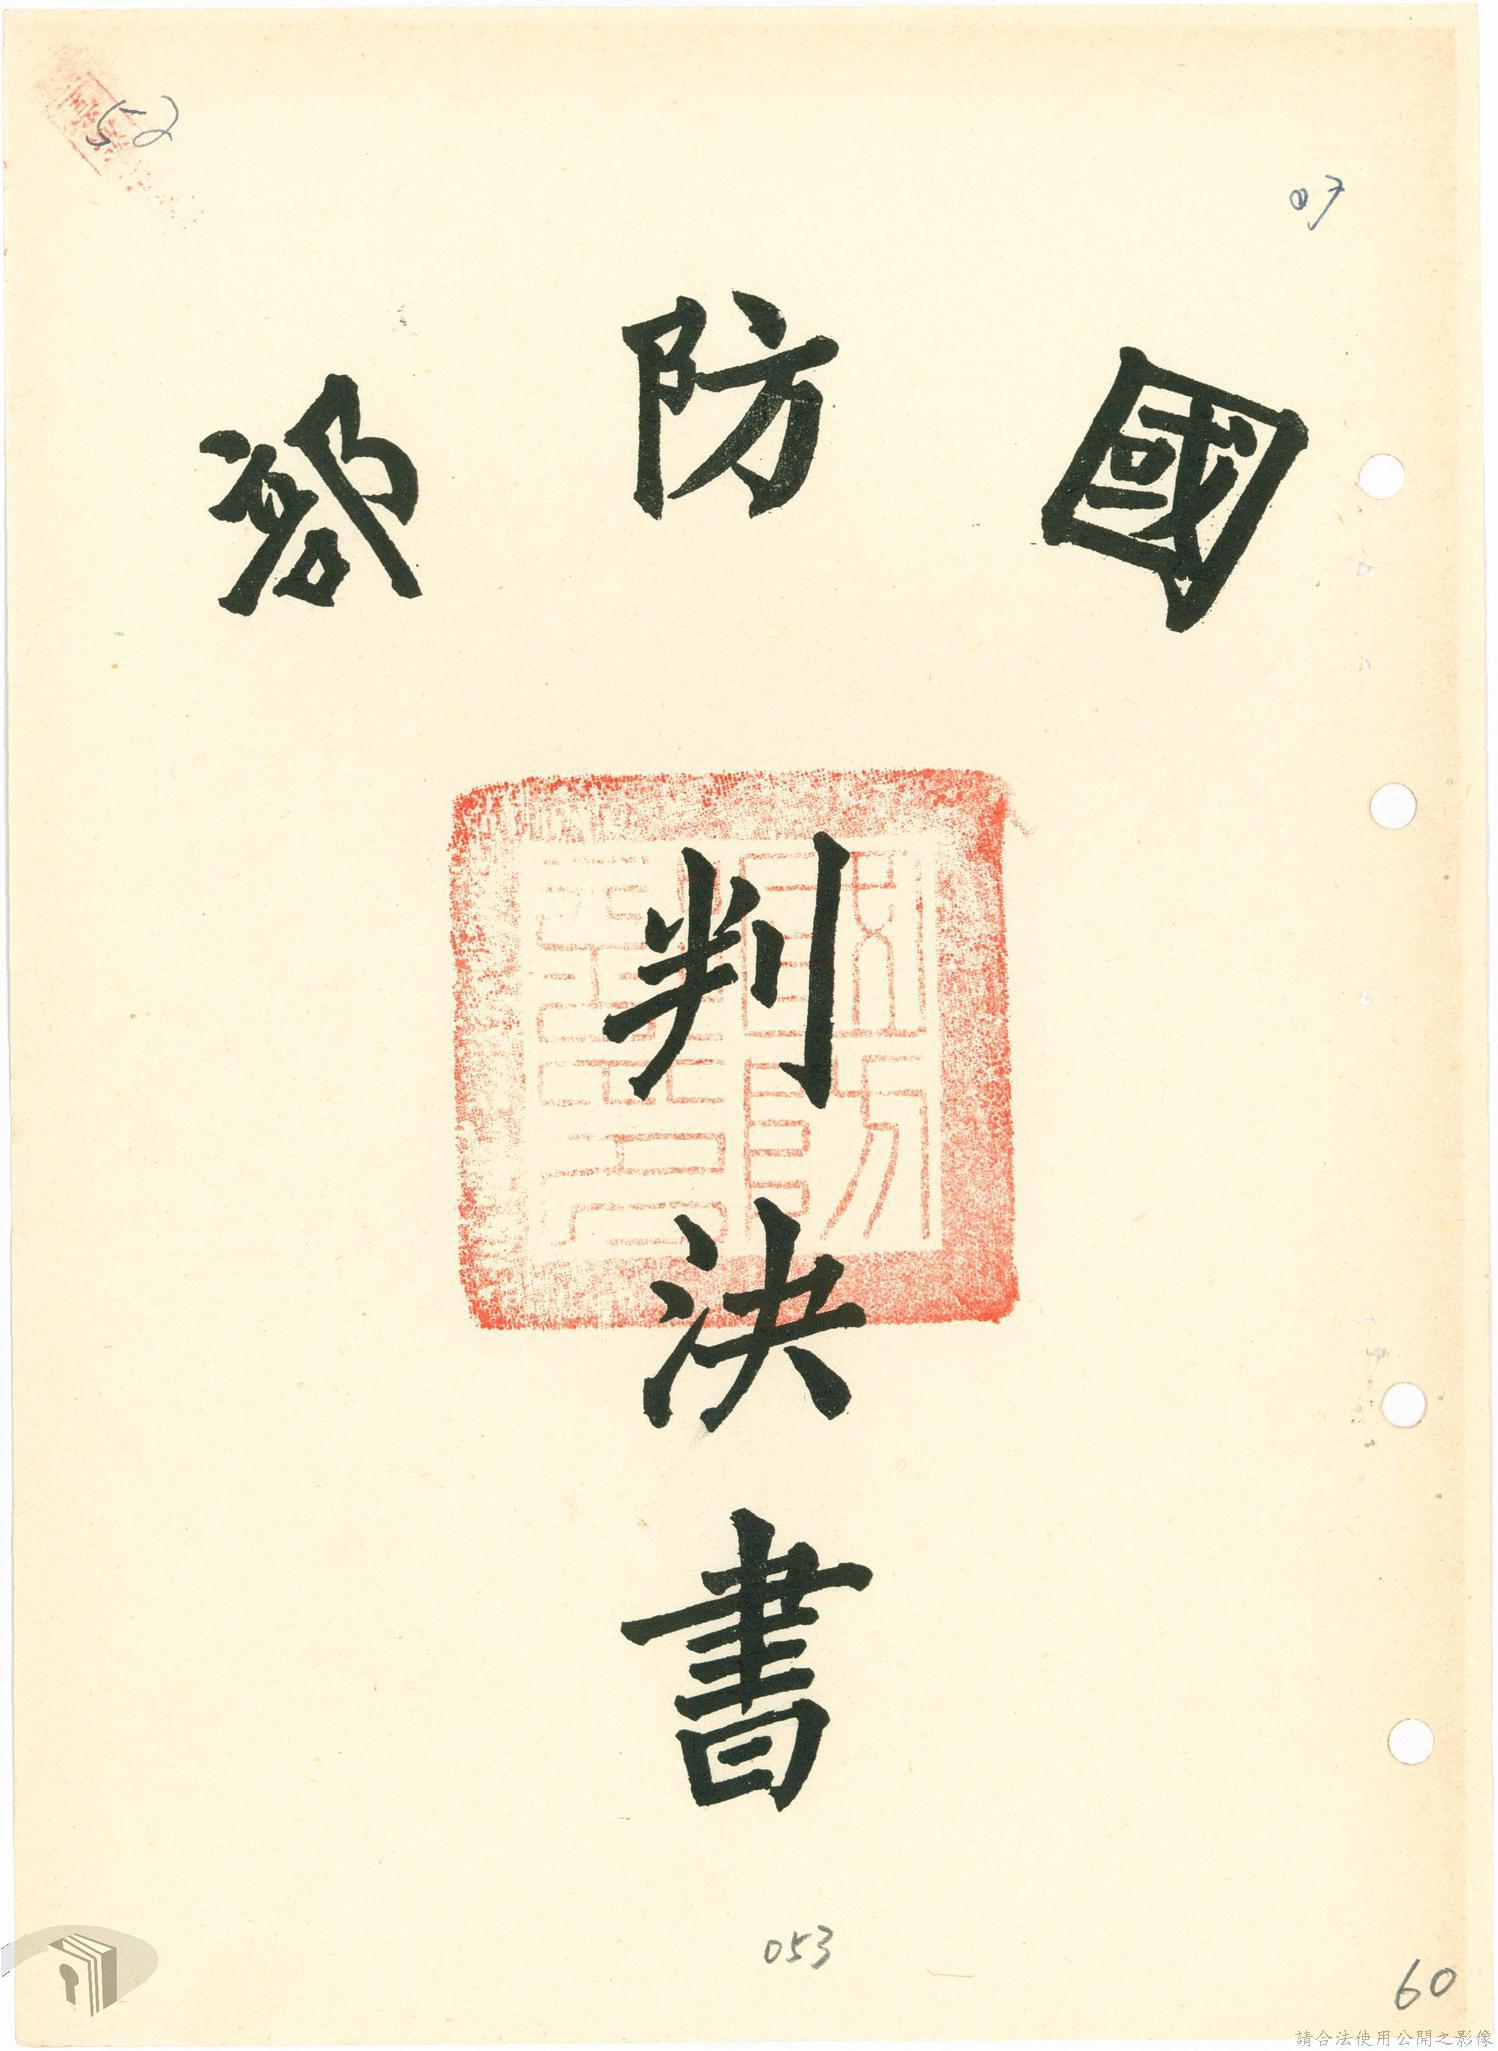 52
07
國防部
判決書
053
60
請合法使用公開之影像